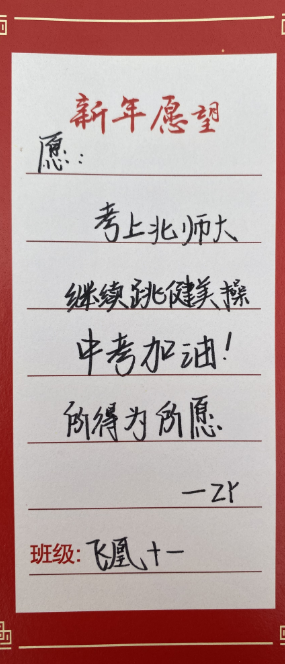 新年愿望
愿：
考上北师大
继续跳健美操
中考加油！
所得为所愿
班级：飞凰十一